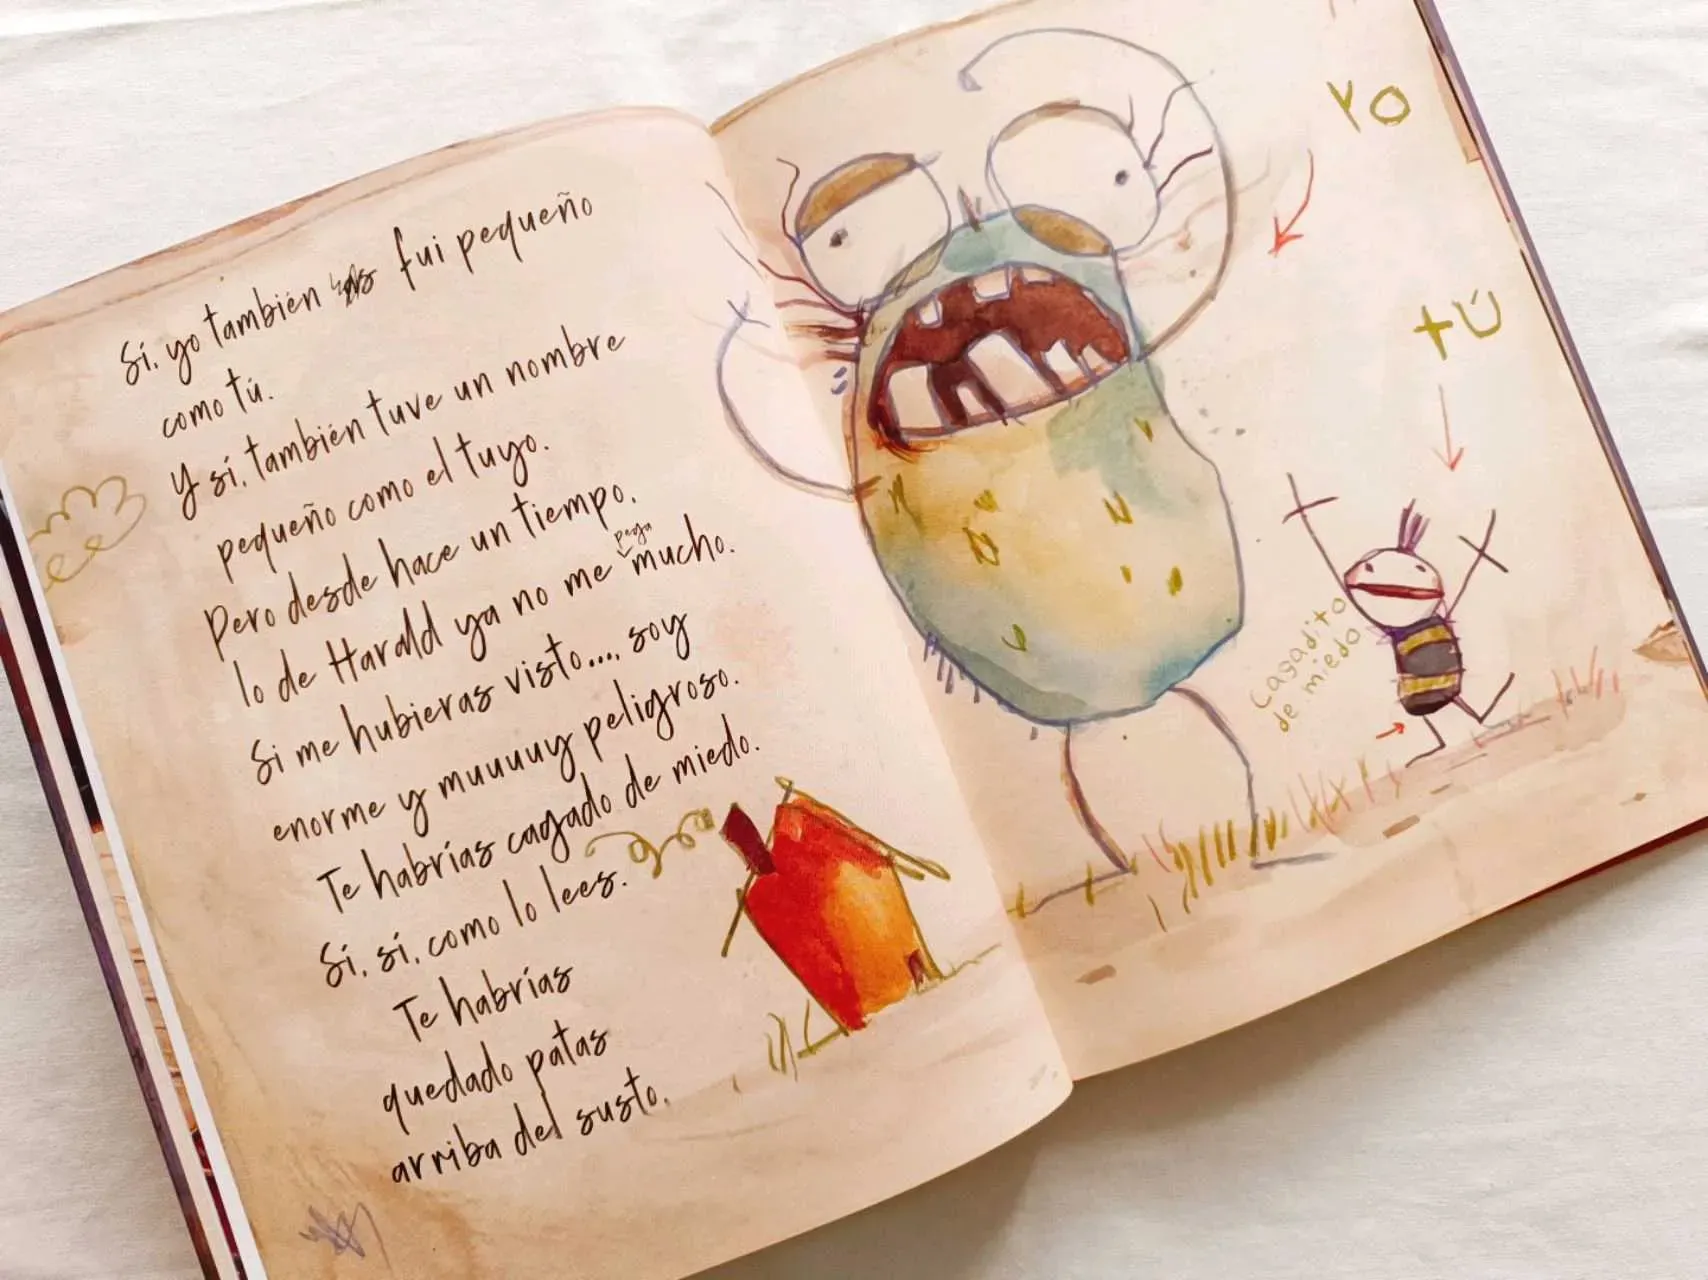 Sí, yo también fui pequeño
como tú.
Y sí, también tuve un nombre
pequeño como el tuyo.
Pero desde hace un tiempo,
lo de Harald ya no me pega mucho.
Si me hubieras visto...., soy
enorme y muuuuy peligroso.
Te habrías cagado de miedo.
Sí, sí, como lo lees.
Te habrías
quedado patas
arriba del susto.
YO
TÚ
Cagadito
de miedo